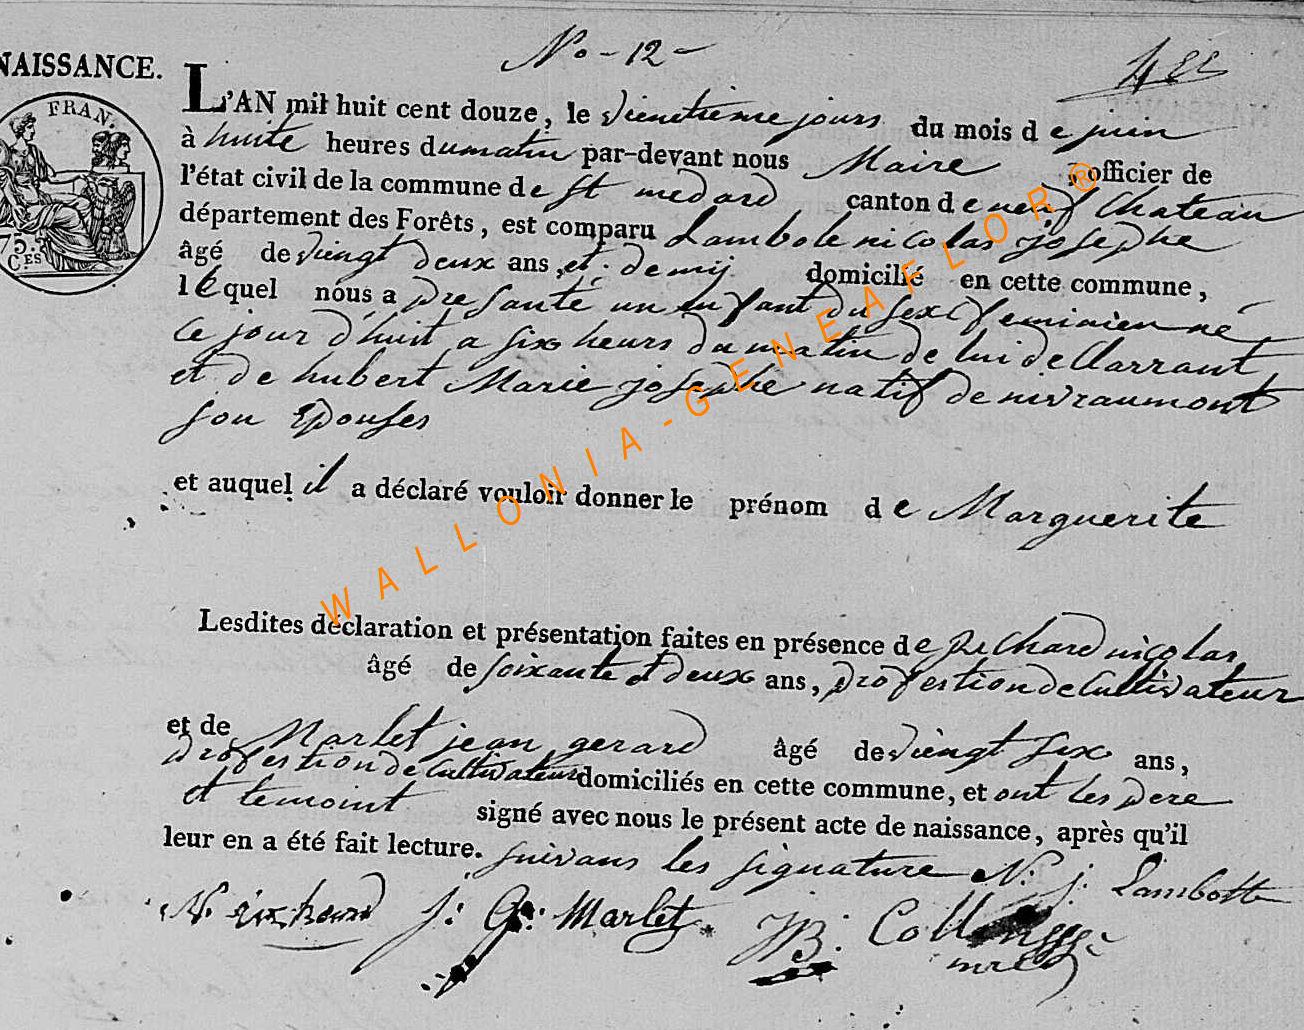 No - 12 -
NAISSANCE.
FRAN.
75.
C.ES
L'AN mil huit cent douze, le vientieme jours du mois de juin
à huite heures du matin par-devant nous Maire officier de
l'état civil de la commune de st medard canton de neuf Chateau
département des Forêts, est comparu Lambote nicolas josephe
âgé de viengt deux ans, et demij domicilié en cette commune,
lequel nous a presanté un enfant du sexe feminien né
ce jour d'huit a six heurs du matin de lui declarrant
et de hubert Marie josephe natif de nivraumont
son Epouses
et auquel il a déclaré vouloir donner le prénom de Marguerite
Lesdites déclaration et présentation faites en présence de richard nicolas,
âgé de soixante et deux ans, profestion de Cultivateur
et de Marlet jean gerard âgé de viengt six ans,
profestion de Cultivateur domiciliés en cette commune, et ont les pere
et temoint signé avec nous le présent acte de naissance, après qu'il
leur en a été fait lecture. suivans les signature N: j: Lambotte
N. j: G: Marlet JB: Coll
WALLONIA-GENEAFLOR®